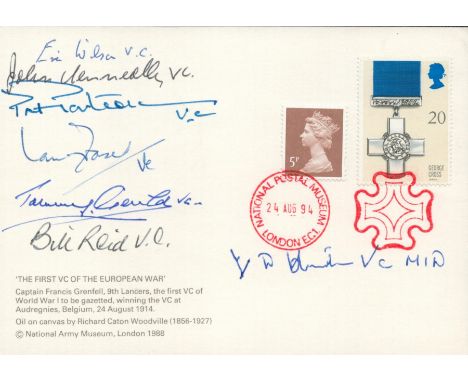 Eric Wilson V.C.
John Kenneally VC.
Pat Porteous
V.C
Ian Fraser
VC
Tommy Gould VC
Bill Reid V.C.
5P
20
GEORGE
CROSS
NATIONAL POSTAL MUSEUM
24 AUG 94
LONDON EC1
VC MID
'THE FIRST VC OF THE EUROPEAN WAR'
Captain Francis Grenfell, 9th Lancers, the first VC of
World War I to be gazetted, winning the VC at
Audregnies, Belgium, 24 August 1914.
Oil on canvas by Richard Caton Woodville (1856-1927)
© National Army Museum, London 1988